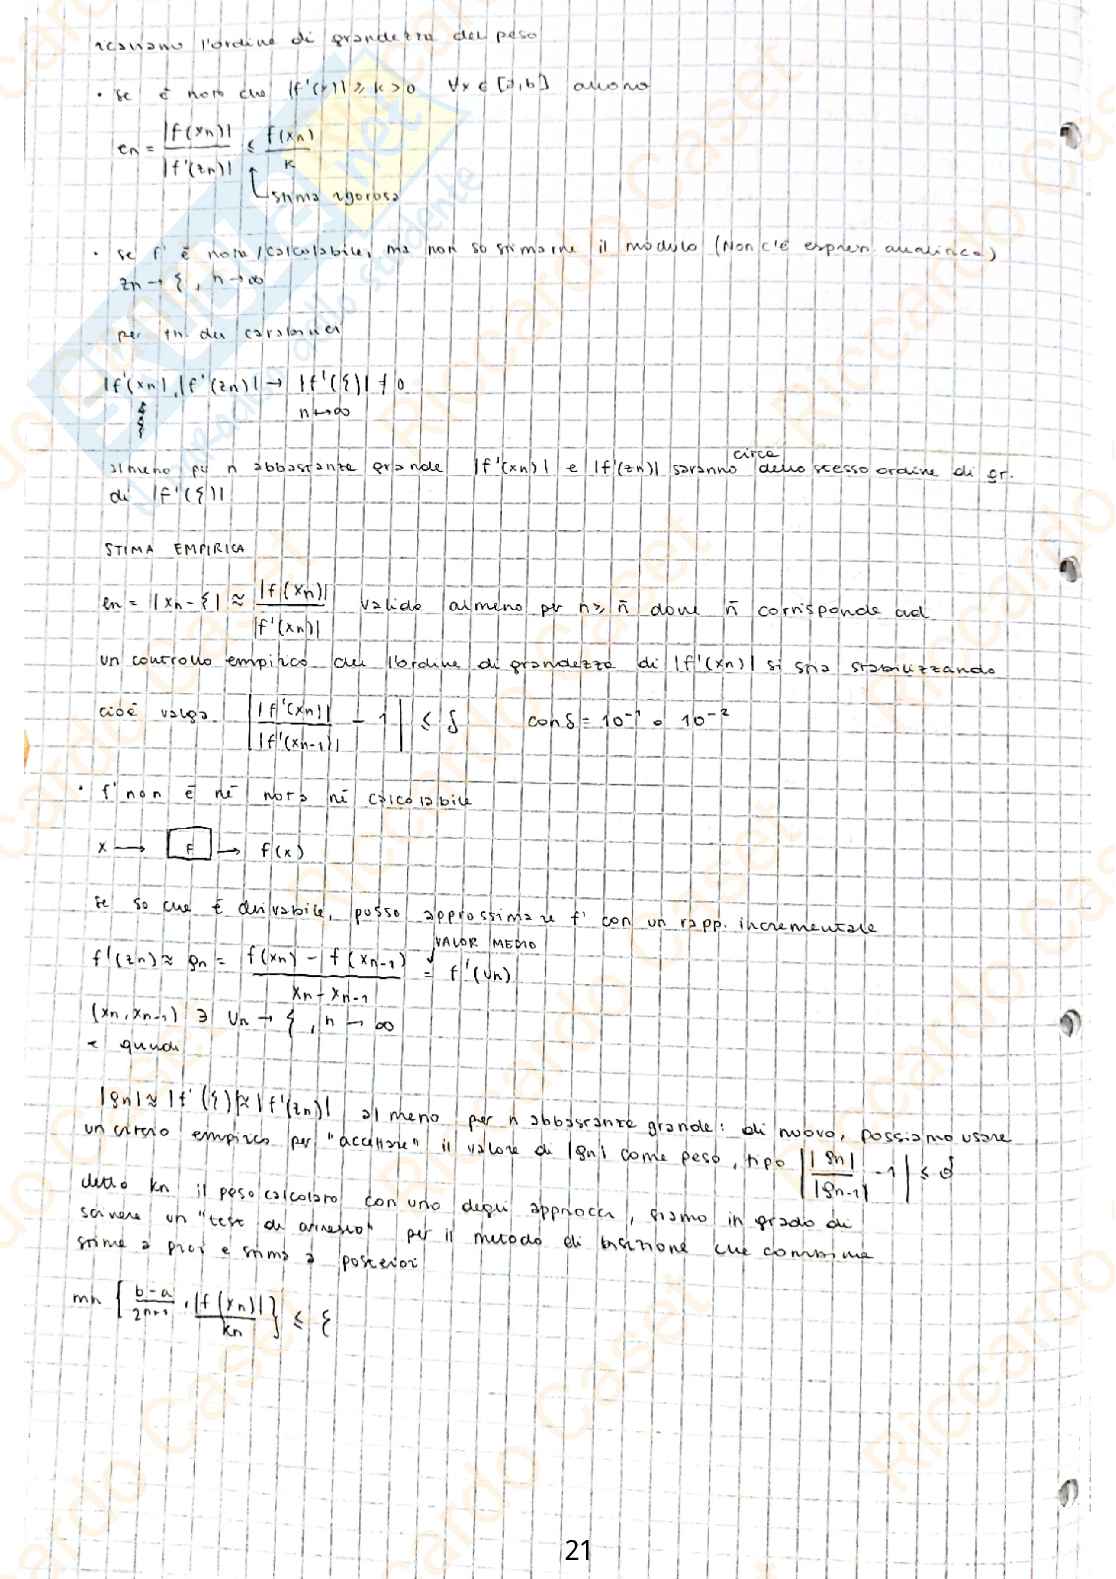 l'ordine di grandezza del peso
• se è noto che |f'(x)| ≥ k > 0 ∀x ∈ [a,b] allora
en = |f(xn)| / |f'(zn)| ≤ f(xn) / k
stima rigorosa
• se f' è nota/calcolabile, ma non so stimarne il modulo (Non c'è espren. analitica)
zn → ξ, n → ∞
per tn. dei carabinieri
|f'(xn)|, |f'(zn)| → |f'(ξ)| ≠ 0
n → ∞
ξ
circa
almeno per n abbastanza grande |f'(xn)| e |f'(zn)| saranno dello stesso ordine di gr.
di |f'(ξ)|
STIMA EMPIRICA
en = |xn - ξ| ≈ |f(xn)| / |f'(xn)| valida almeno per n ≥ n̄ dove n̄ corrisponde ad
un controllo empirico che l'ordine di grandezza di |f'(xn)| si sta stabilizzando
cioè valga | |f'(xn)| / |f'(xn-1)| - 1 | ≤ δ con δ = 10⁻¹ o 10⁻²
• f' non è nè nota nè calcolabile
x → F → f(x)
se so che è derivabile, posso approssimare f' con un rapp. incrementale
VALOR MEDIO
f'(zn) ≈ gn = f(xn) - f(xn-1) / xn - xn-1 = f'(un)
(xn, xn-1) ∋ un → ξ, n → ∞
e quindi
|gn| ≈ |f'(ξ)| ≈ |f'(zn)| almeno per n abbastanza grande: di nuovo, possiamo usare
un criterio empirico per "accettare" il valore di |gn| come peso, tipo | |gn| / |gn-1| - 1 | ≤ δ
detto kn il peso calcolato con uno degli approcci, siamo in grado di
scrivere un "test di arresto" per il metodo di bisezione che combina
stime a priori e stima a posteriori
min { b-a / 2n+1, |f(xn)| / kn } ≤ ξ
21